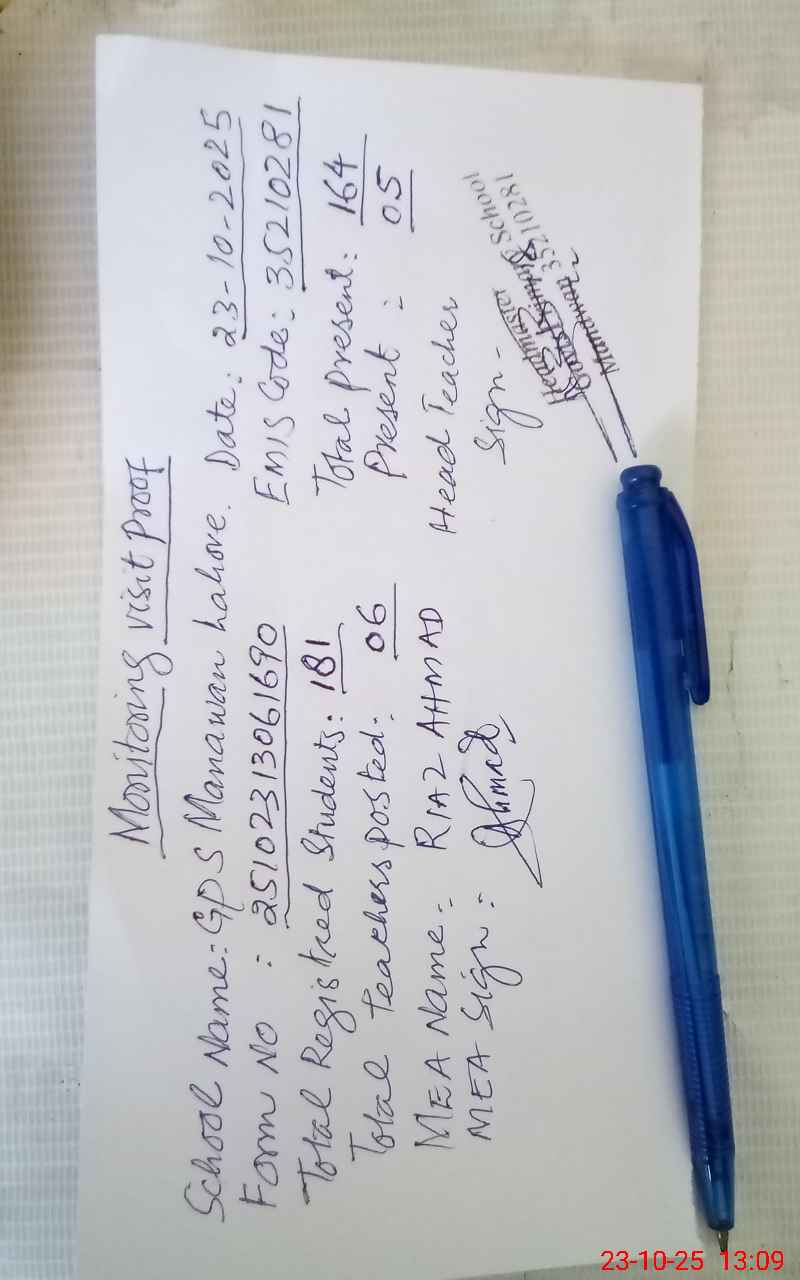 Monitoring visit Proof
School Name: GPS Manawan Lahore. Date: 23-10-2025
Form No : 25102313061690 EMIS Code: 35210281
Total Registred Students: 181 Total Present: 164
Total Teachers posted: 06 Present : 05
MEA Name: RIAZ AHMAD Head Teacher
MEA Sign: Ahmad Sign-
Headmaster
School
35210281
Manawan
23-10-25 13:09